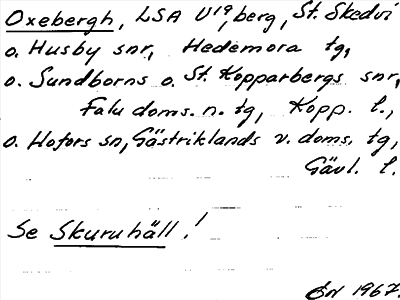 Oxebergh, LSA U19, berg, St. Skedvi
o. Husby snr, Hedemora tg,
o. Sundborns o. St. Kopparbergs snr,
Falu doms. n. tg, Kopp. l.,
o. Hofors sn, Gästriklands v. doms. tg,
Gävl. l.
Se Skuruhäll!
1967.